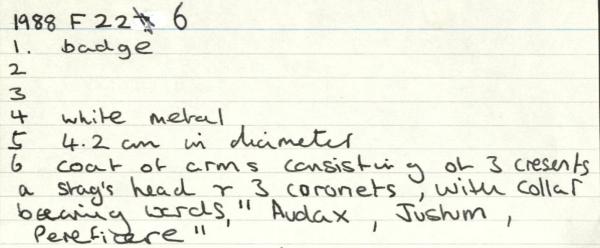 1988 F 22 6
1. badge
2
3
4 white metal
5 4.2 cm in diameter
6 coat of arms consisting of 3 cresents
a stag's head + 3 coronets, with collar
bearing words, " Audax, Justum,
Pereficere "